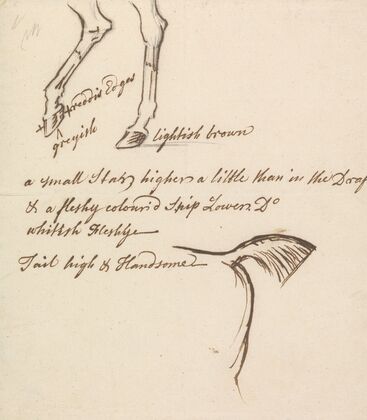 reddis Edges
greyish
lightish brown
a small Star higher a little than in the Draf
& a fleshy colour'd Snip Lower Do
whitish Fleshye
Tail high & Handsome